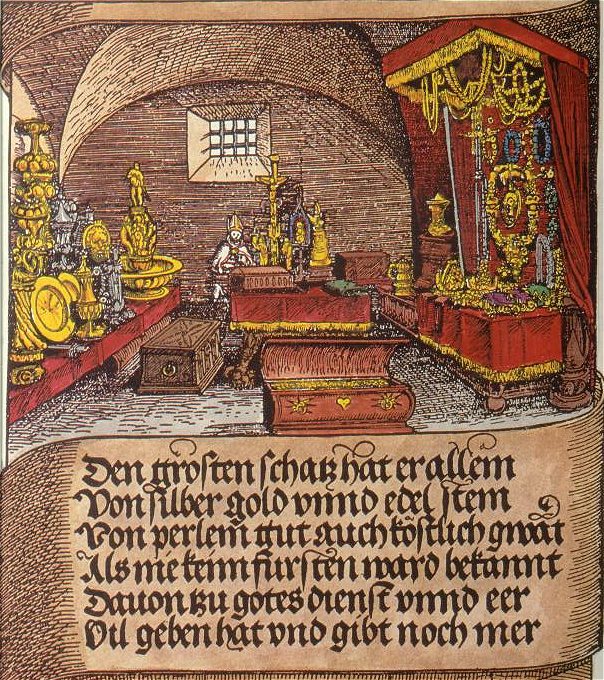 Den grösten schatz hat er allein
Von silber gold vnnd edel stein
Von perlein gut auch köstlich gwat
Als nie keinn fürsten ward bekannt
Dauon tzu gotes dienst vnnd eer
Vil geben hat vnd gibt noch mer